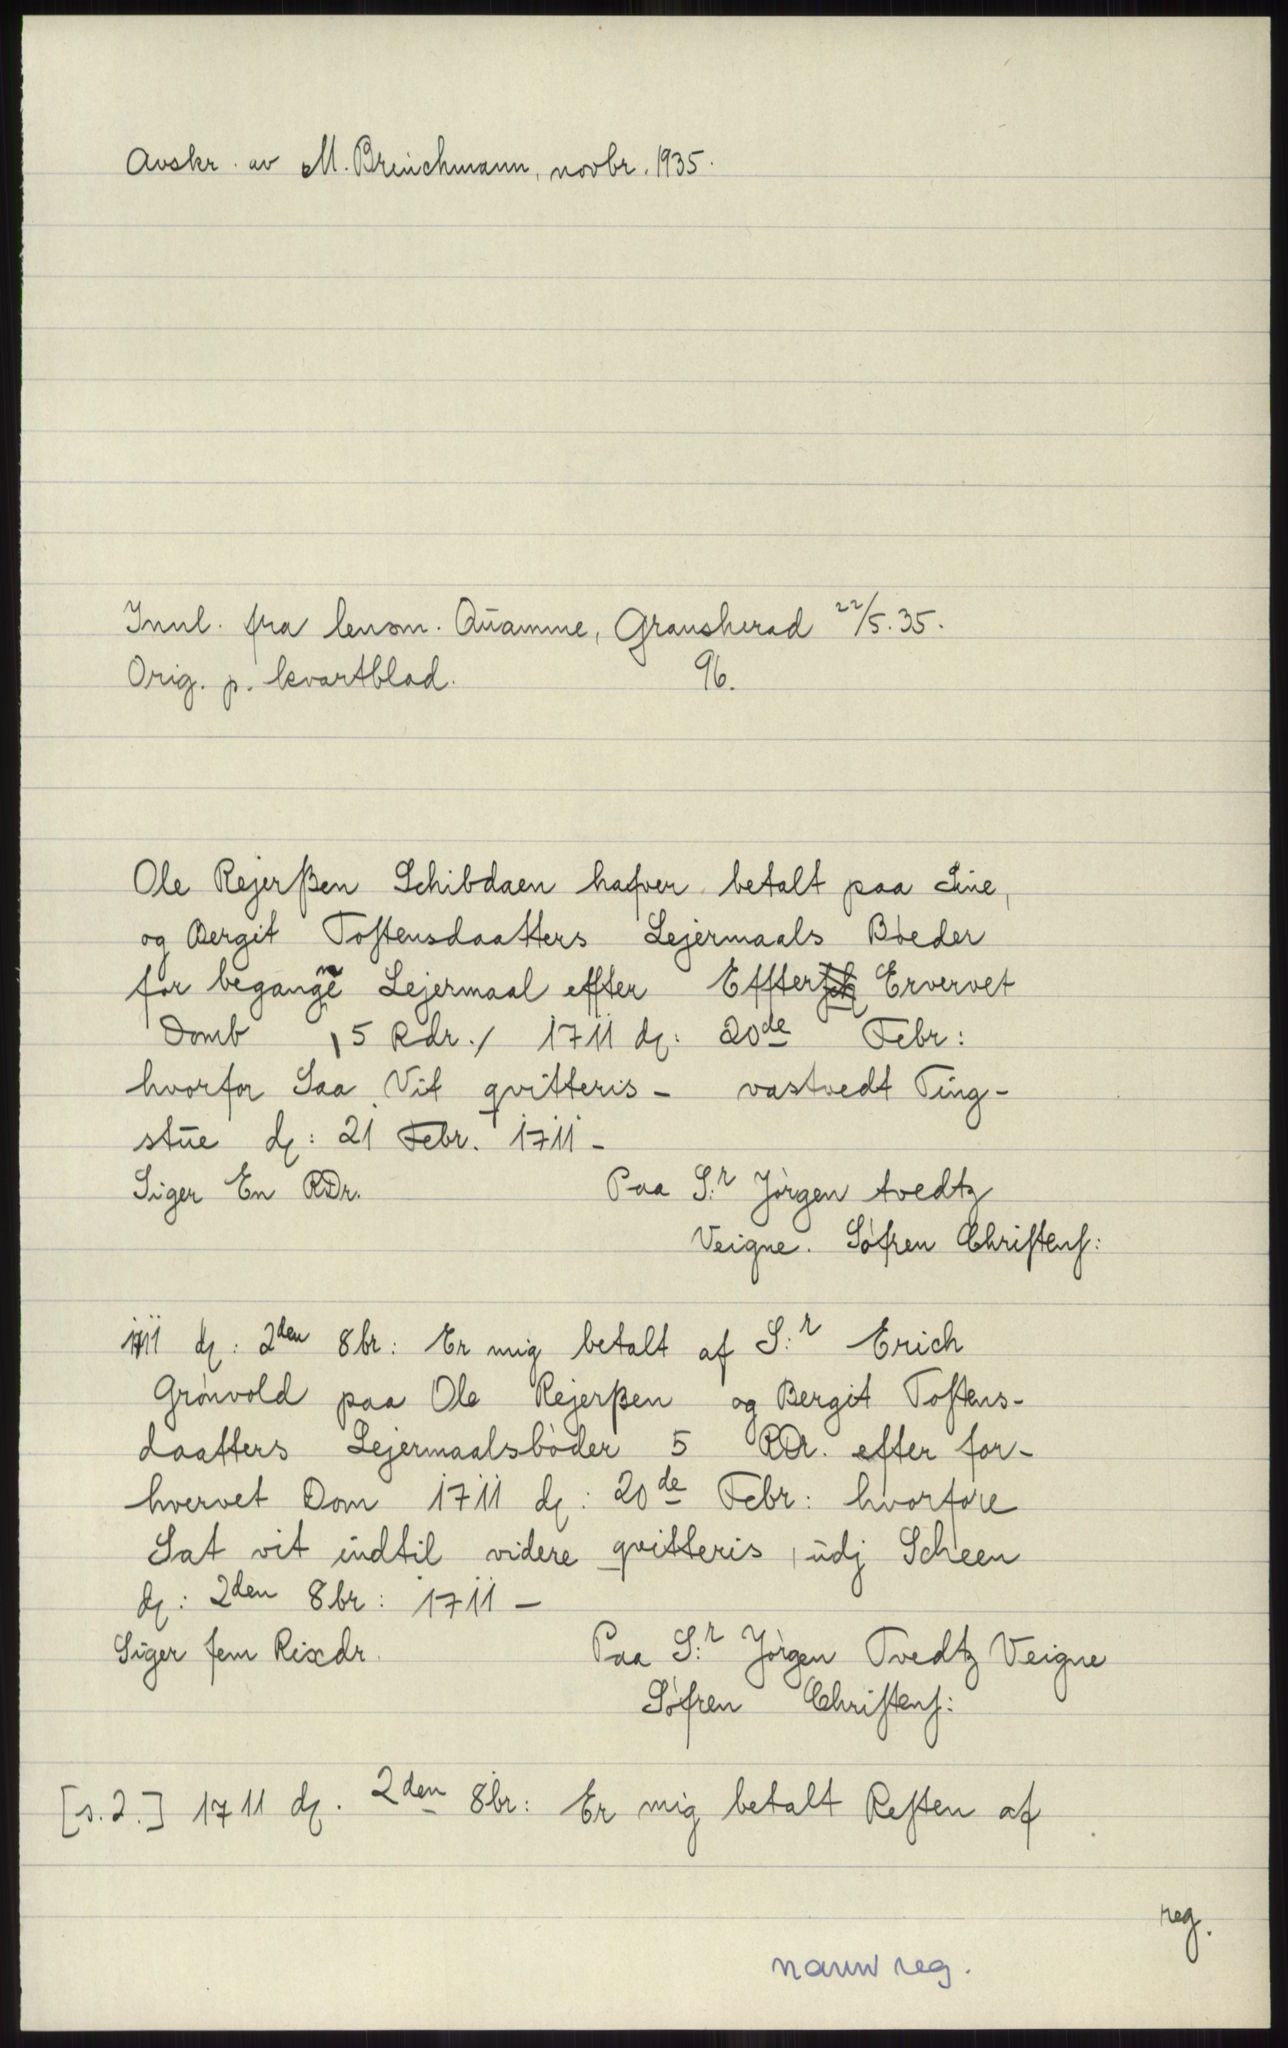 Avskr. av M. Breuchmann, novbr. 1935.
Innl. fra lensm. Quamme, Gransherad 22/5.35.
Orig. p. kvartblad. 96.
Ole Rejerßen Schibdaen hafver betalt paa Sine,
og Bergit Tostensdaatters Lejermaals Bøeder
for begangne Lejermaal efter Effter Ervervet
Domb , 5 Rdr./ 1711 d: 20de Febr:
hvorfor Saa Vit qvitteris – vastvedt Ting-
stue d: 21 Febr. 1711 –
Siger En RDr. Paa S:r Jørgen tvedtz
Veigne. Søfren Christens:
1711 d: 2den 8br: Er mig betalt af S:r Erich
Grønvold paa Ole Rejerßen og Bergit Tostens-
daatters Lejermaalsbøder 5 RDr. efter for-
hvervet Dom 1711 d: 20de Febr: hvorfore
Sat vit indtil videre qvitteris, udj Scheen
d: 2den 8br: 1711 –
Siger fem Rixdr. Paa S:r Jørgen Tvedtz Veigne
Søfren Christens:
[s. 2.] 1711 d. 2den 8br: Er mig betalt Resten af
reg.
navn reg.